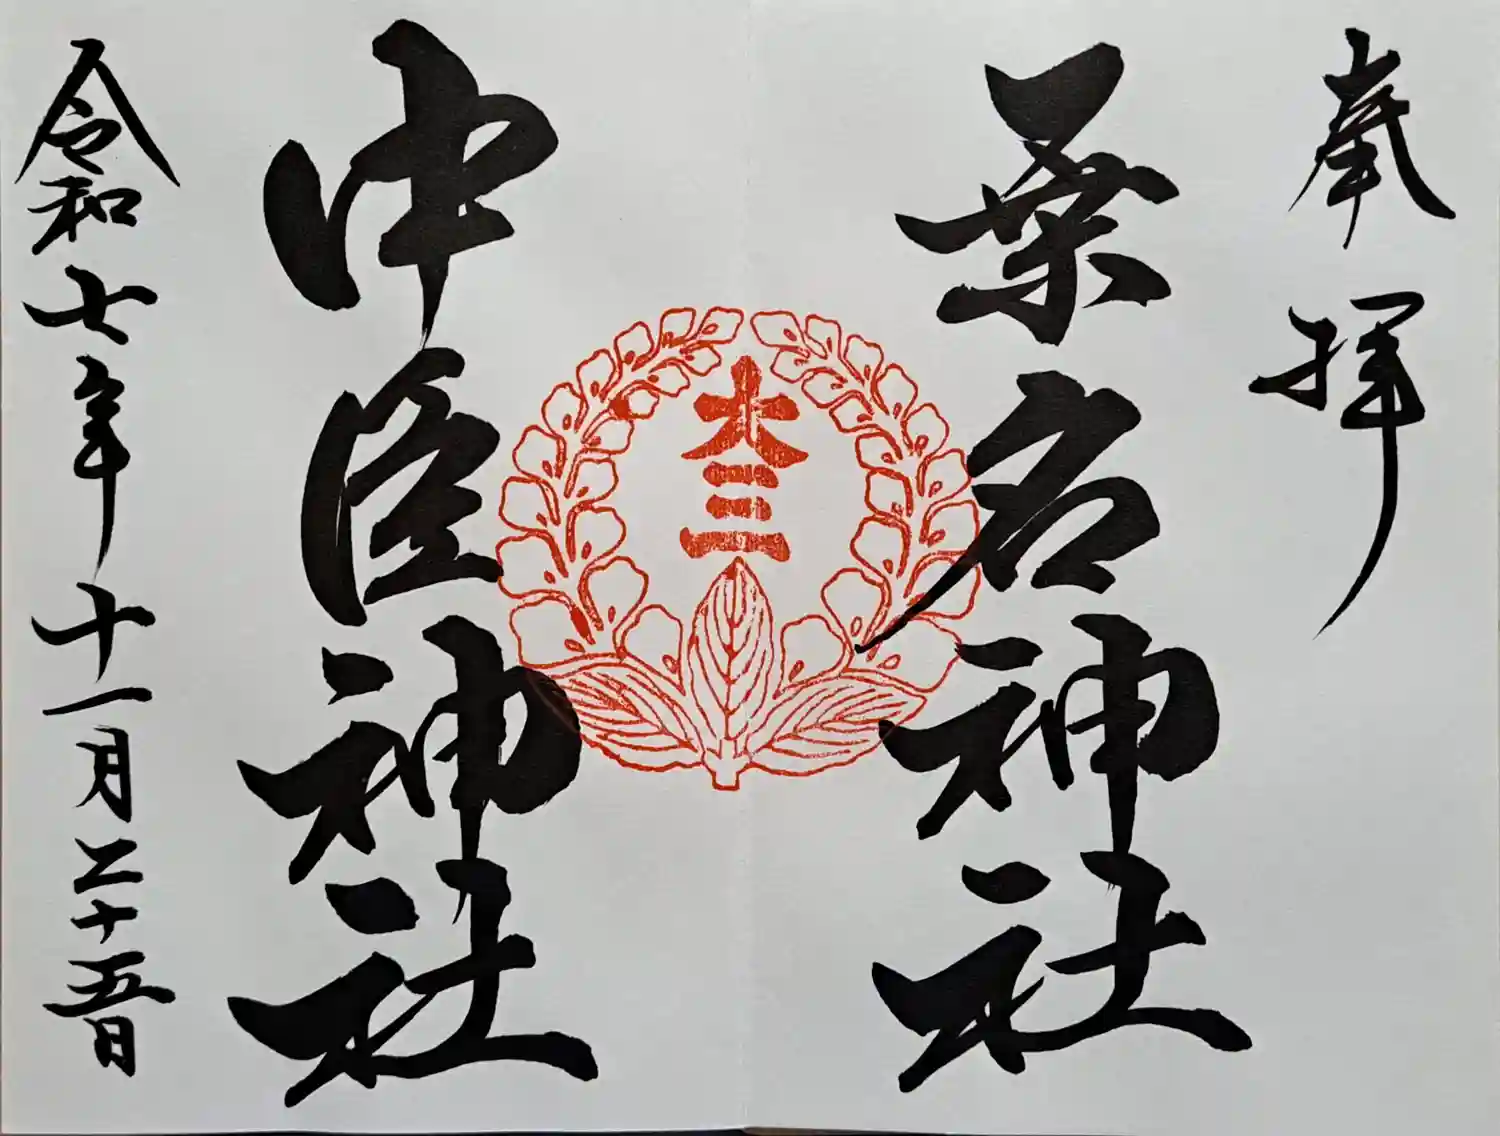 奉拝
桑名神社
大三三
中臣神社
令和七年十一月二十五日